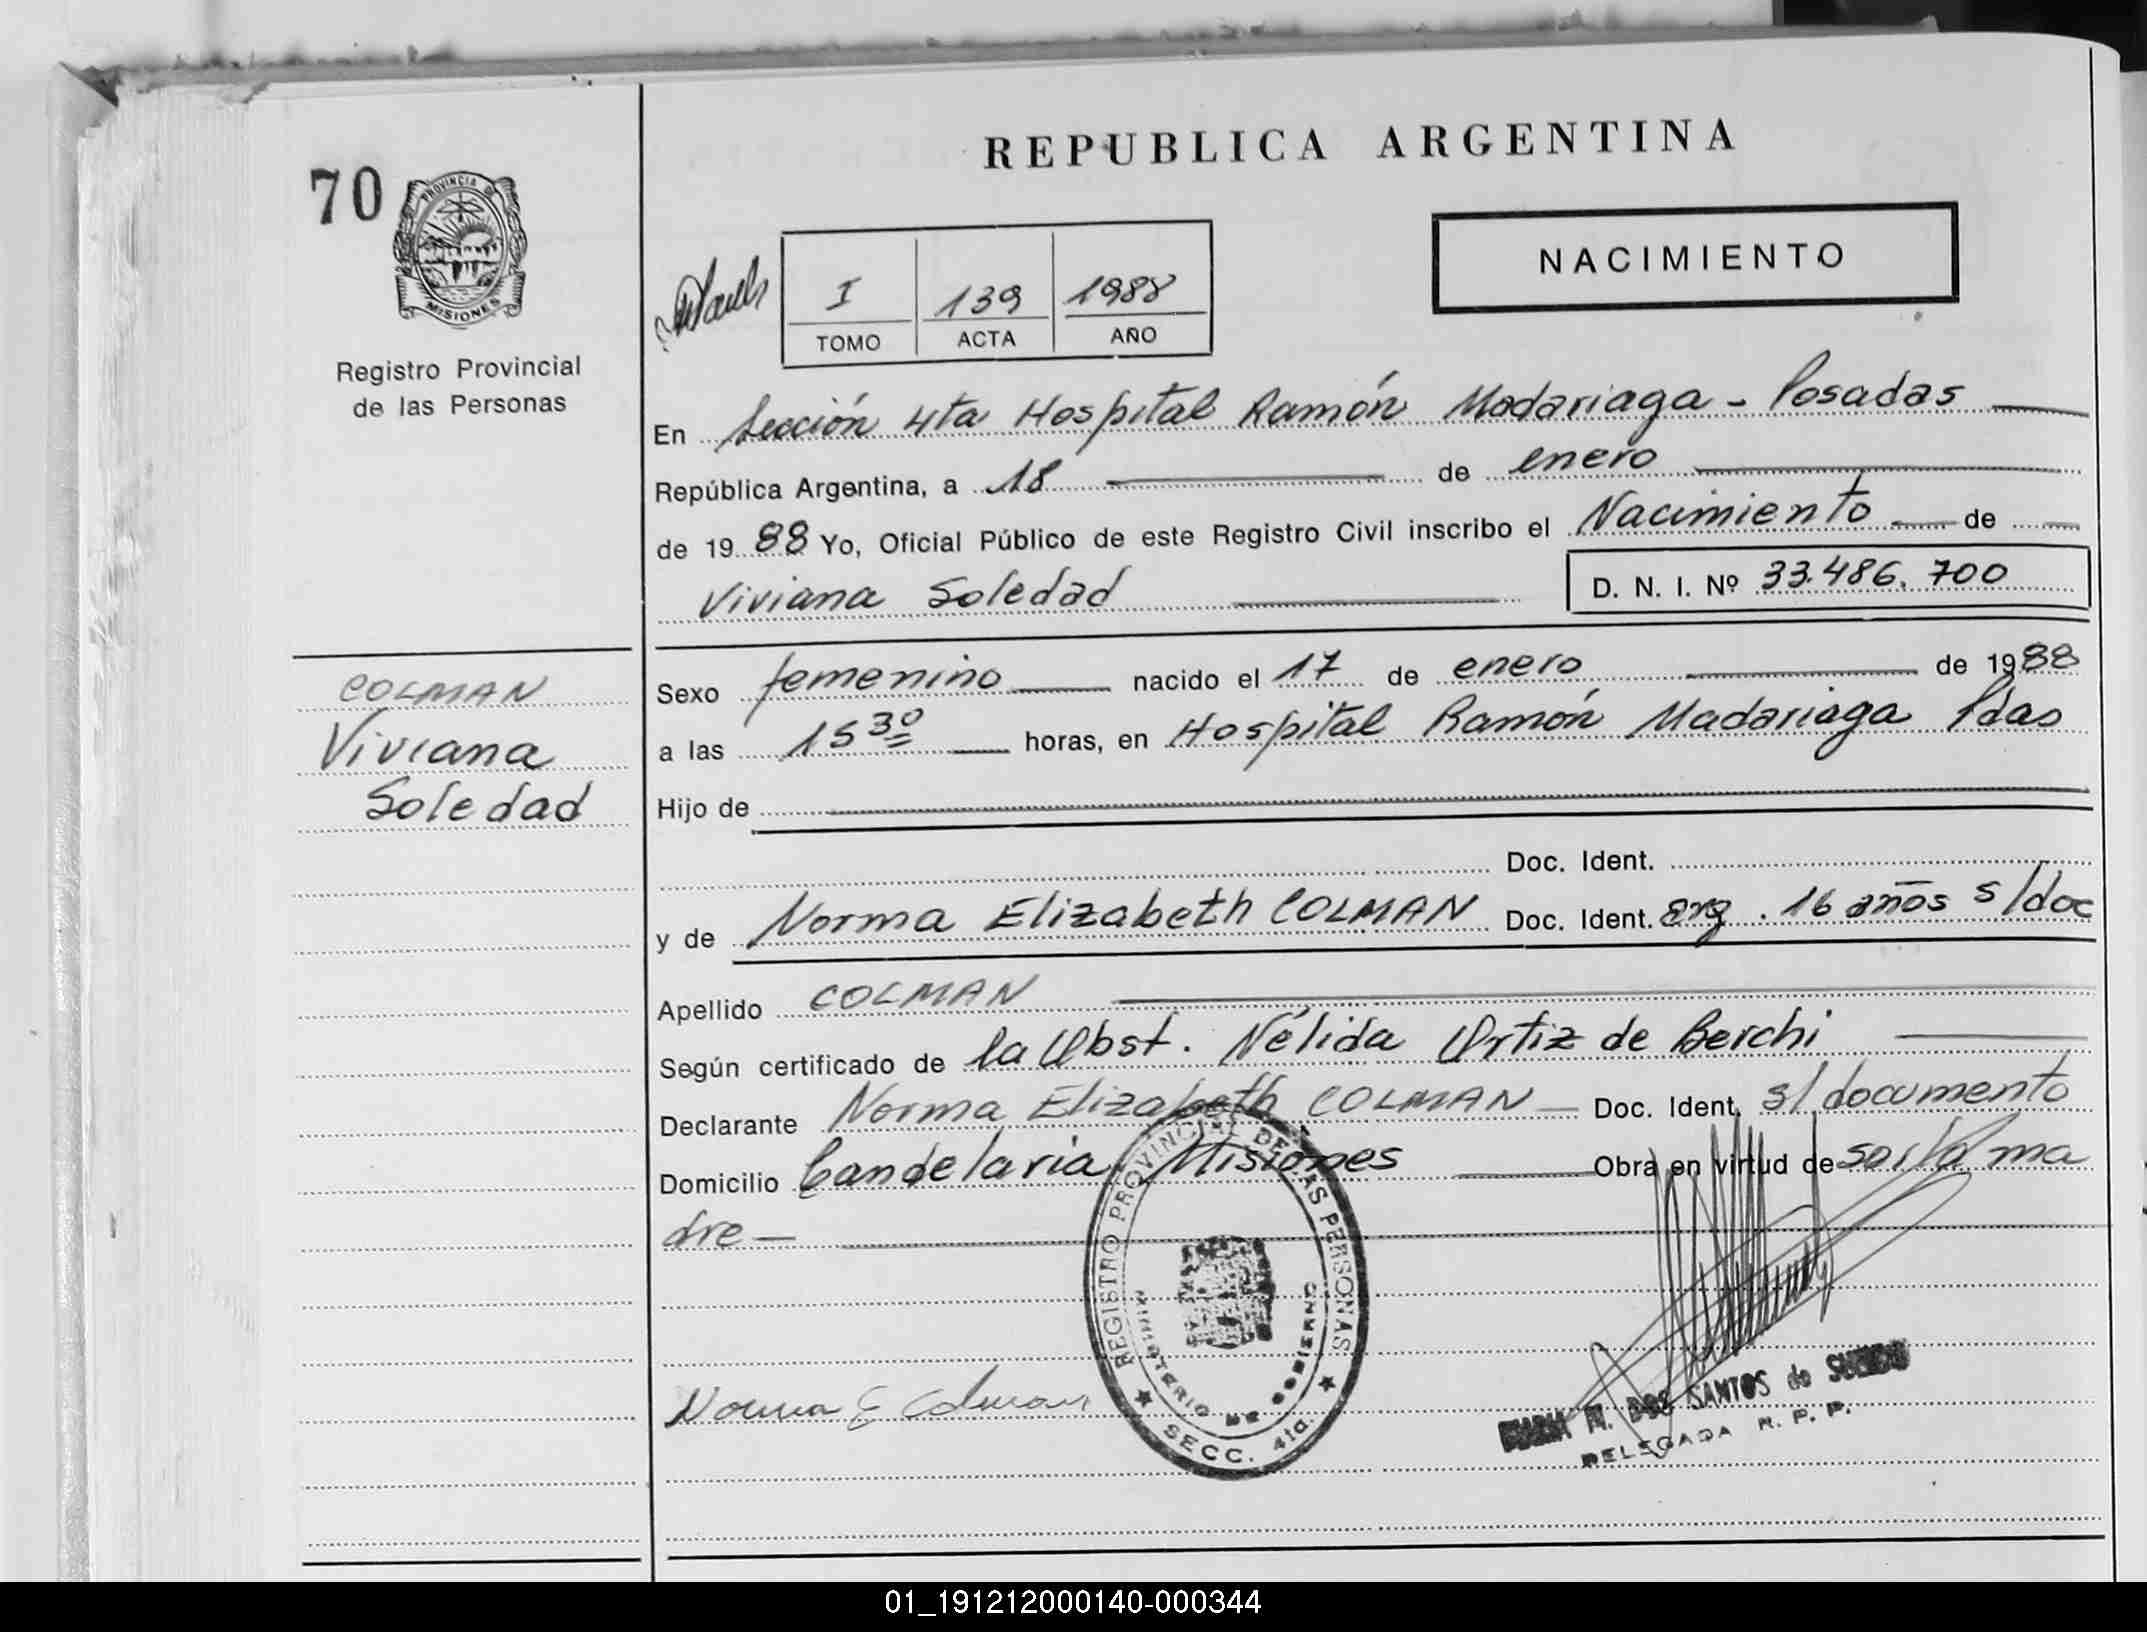 REPUBLICA ARGENTINA
70
PROVINCIA DE
MISIONES
NACIMIENTO
I 139 1988
TOMO ACTA AÑO
Registro Provincial
de las Personas
En Sección 4ta Hospital Ramón Madariaga - Posadas
República Argentina, a 18 de enero
de 19 88 Yo, Oficial Público de este Registro Civil inscribo el Nacimiento de
Viviana Soledad D. N. I. Nº 33.486.700
COLMAN
Viviana
Soledad
Sexo femenino nacido el 17 de enero de 1988
a las 15 30 horas, en Hospital Ramón Madariaga Pdas
Hijo de
Doc. Ident.
y de Norma Elizabeth COLMAN Doc. Ident. arg. 16 años s/doc
Apellido COLMAN
Según certificado de la Obst. Nélida Ortiz de Berchi
Declarante Norma Elizabeth COLMAN Doc. Ident. s/documento
Domicilio Candelaria Misiones Obra en virtud de ser la ma
dre
REGISTRO PROVINCIAL DE LAS PERSONAS
MINISTERIO DE GOBIERNO
SECC. 4ta.
Norma E Colman
M. DOS SANTOS de
DELEGADA R. P. P.
01_191212000140-000344